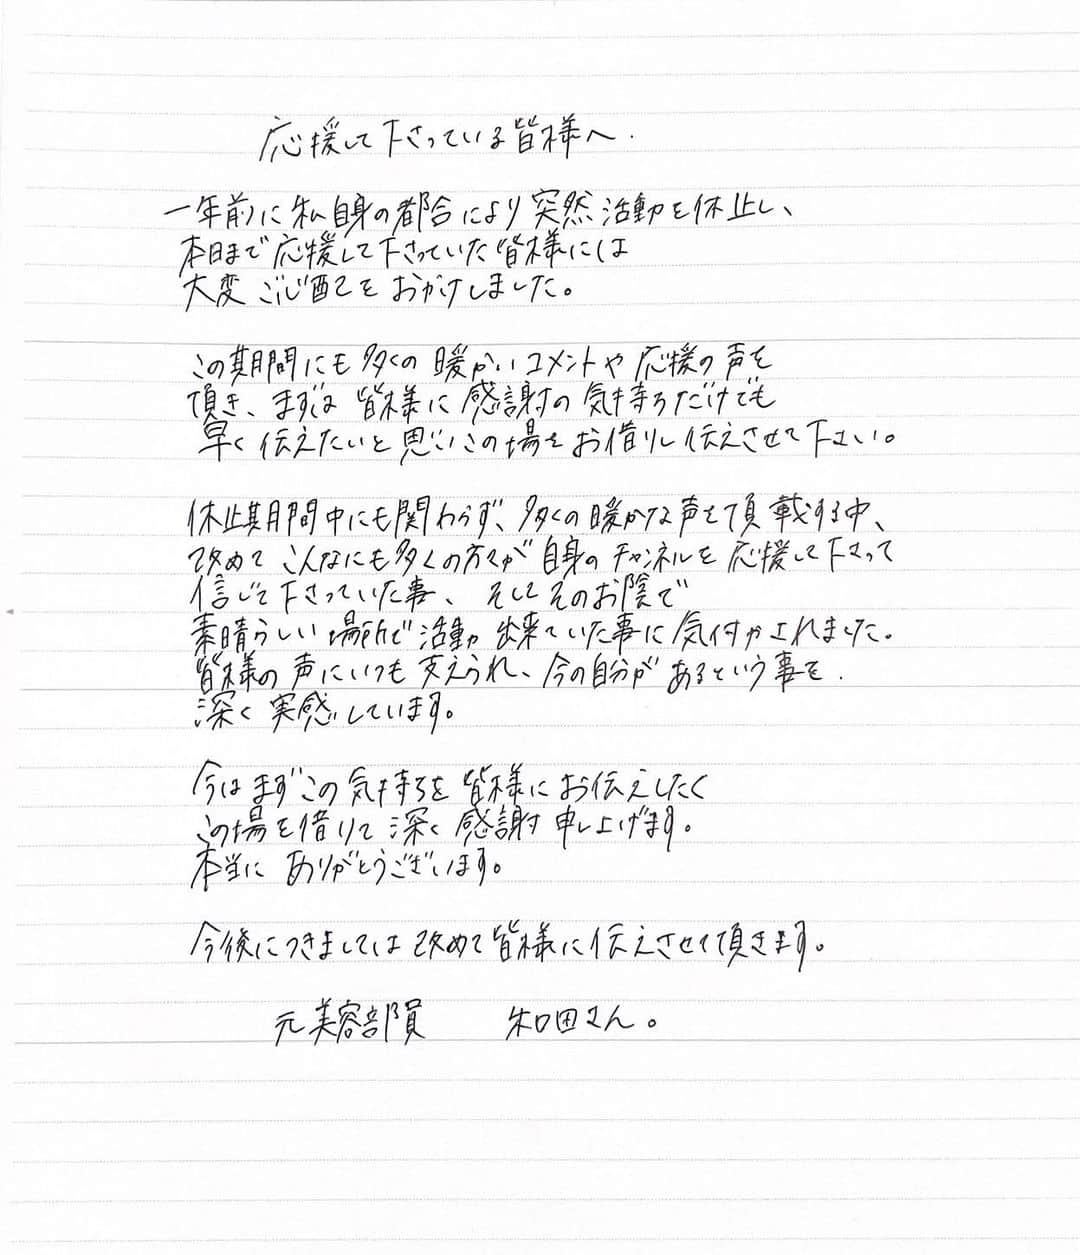 応援して下さっている皆様へ.
一年前に私自身の都合により突然活動を休止し、
本日まで応援して下さっていた皆様には
大変ご心配をおかけしました。
この期間にも多くの暖かいコメントや応援の声を
頂き、まずは皆様に感謝の気持ちだけでも
早く伝えたいと思いこの場をお借りし伝えさせて下さい。
休止期間中にも関わらず、多くの暖かな声を頂載する中、
改めてこんなにも多くの方々が自身のチャンネルを応援して下さって
信じて下さっていた事、そしてそのお陰で
素晴らしい場所で活動出来ていた事に気付かされました。
皆様の声にいつも支えられ、今の自分があるという事を.
深く実感しています。
今はまずこの気持ちを皆様にお伝えしたく
この場を借りて深く感謝申し上げます。
本当にありがとうございます。
今後につきましては改めて皆様に伝えさせて頂きます。
元美容部員 和田さん。